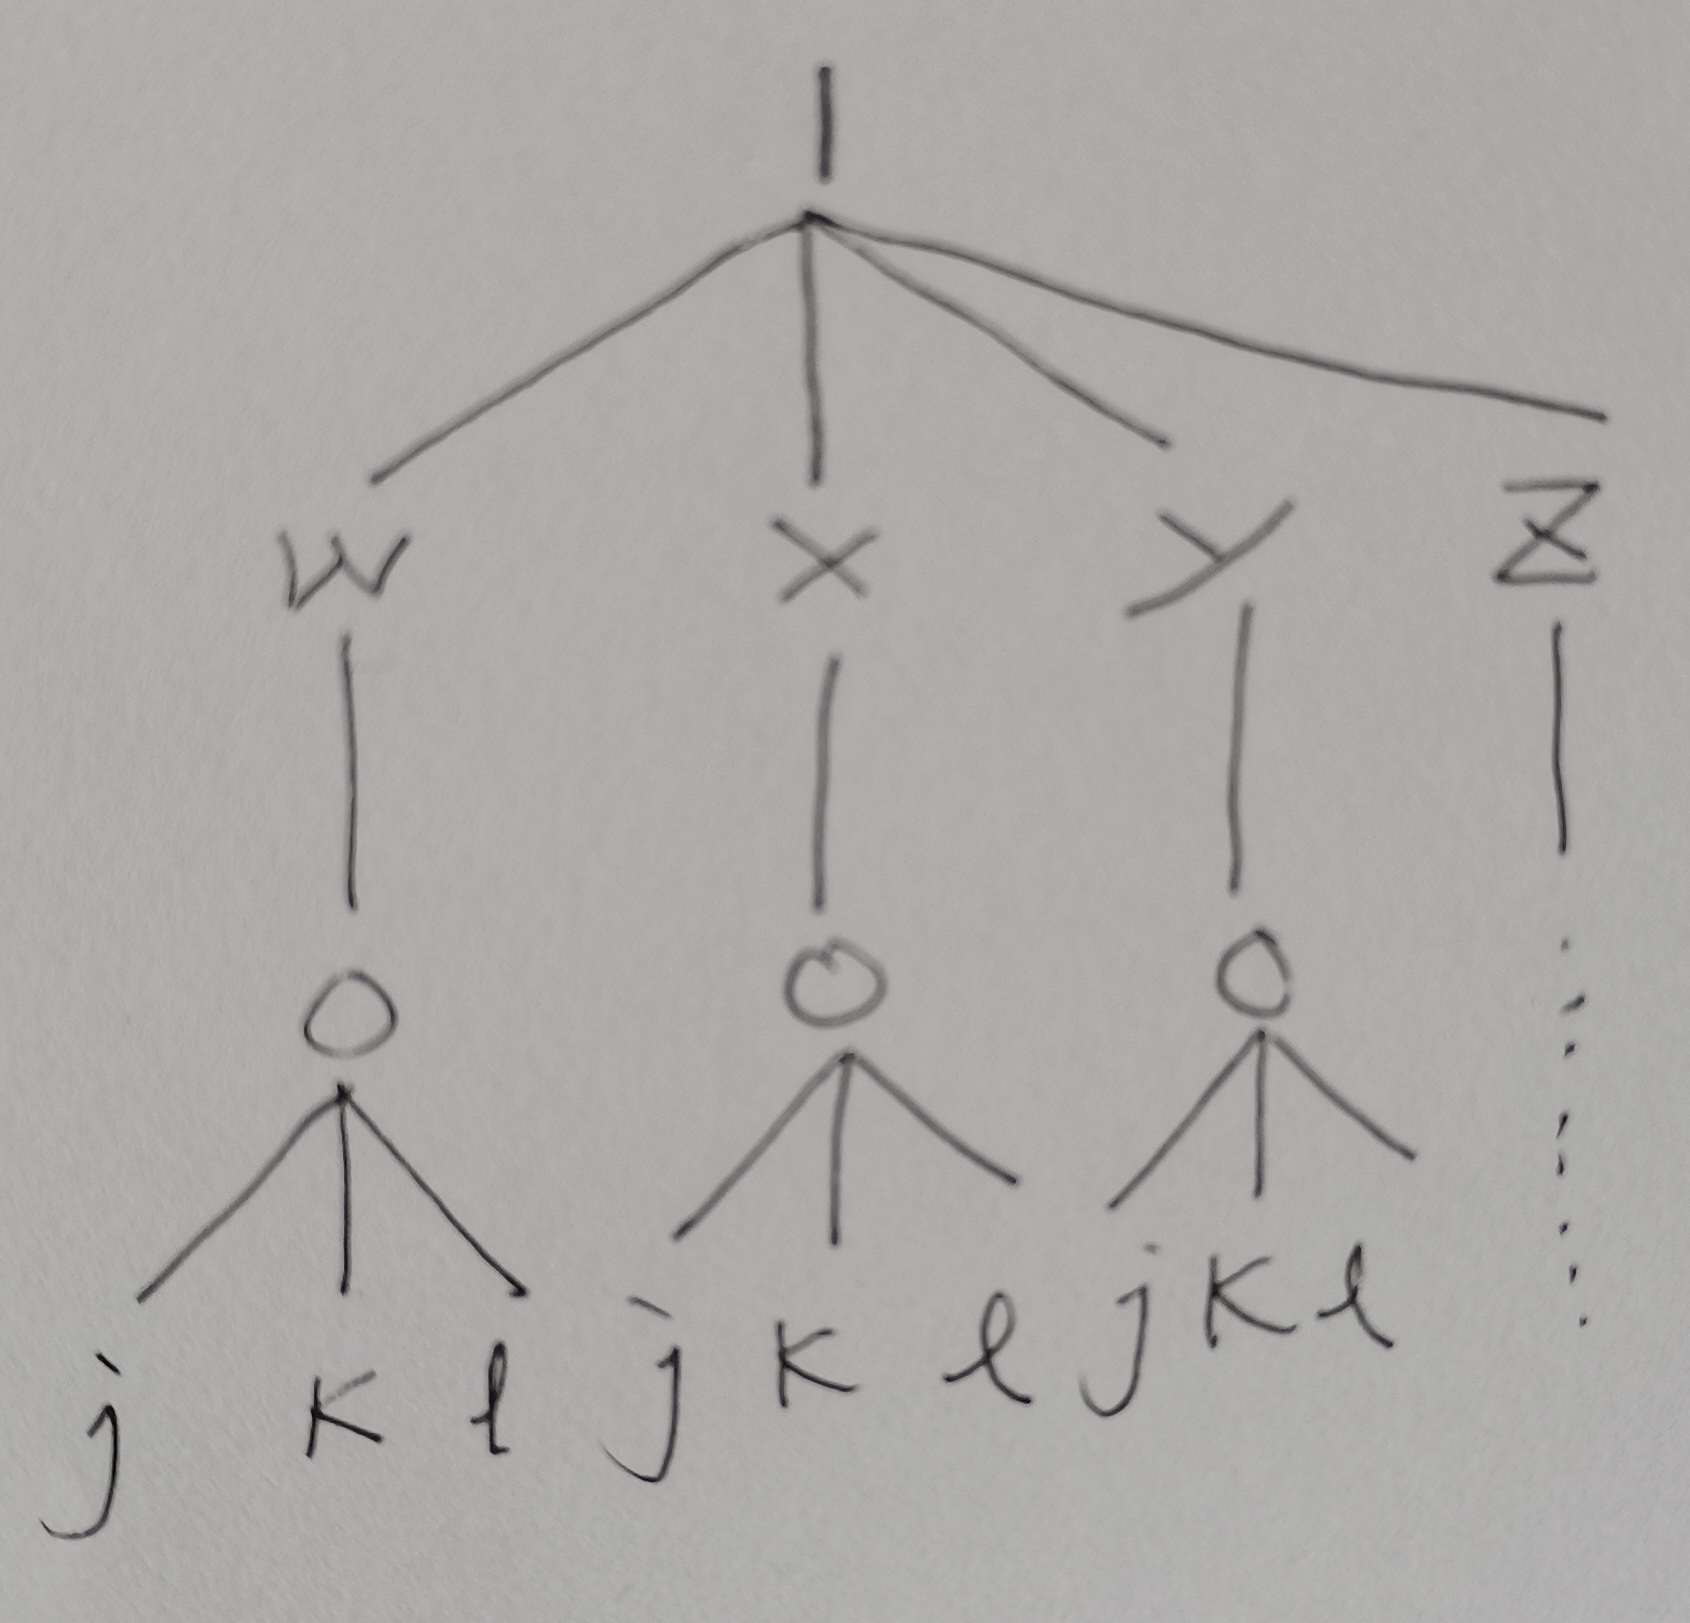 I
W X Y Z
O O O
j k l j k l j k l